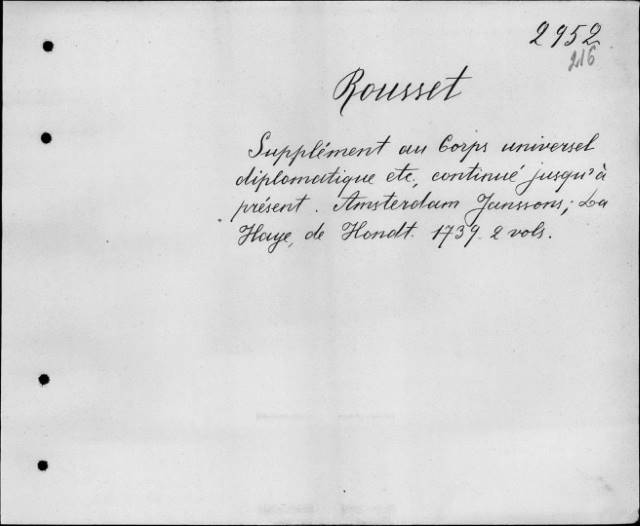 2952
216
Rousset
Supplément au Corps universel
diplomatique etc, continué jusqu'à
présent. Amsterdam Janssons; La
Haye, de Hondt. 1739. 2 vols.